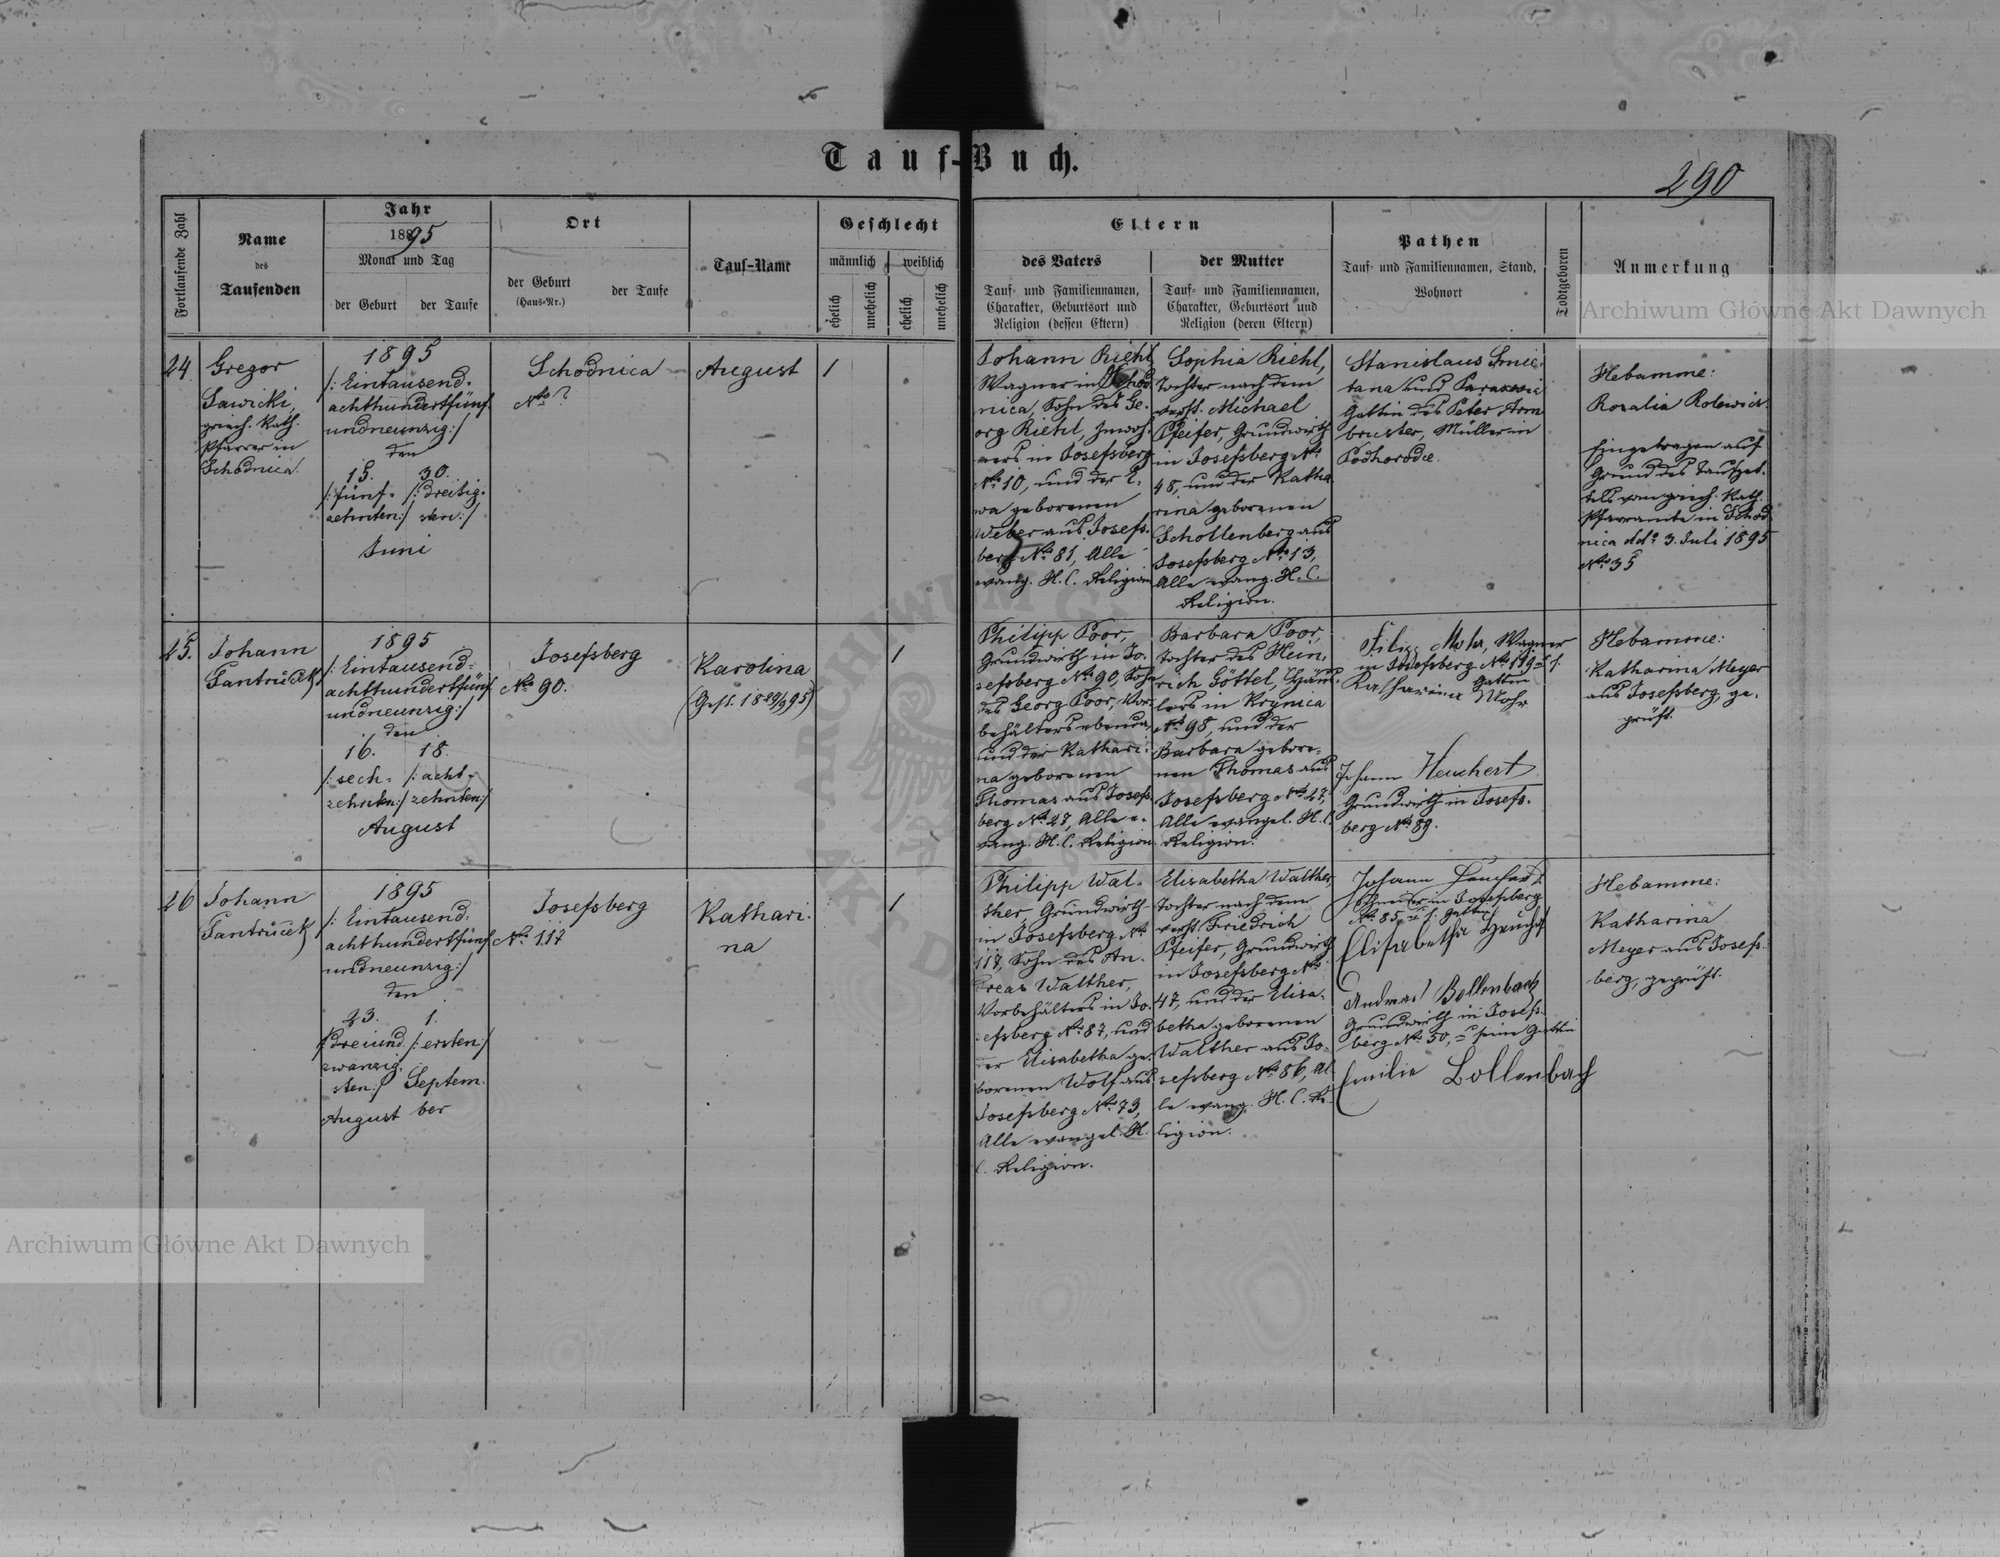 Tauf-Buch.
290
Fortlaufende Zahl
Name
des
Taufenden
Jahr
1895
Monat und Tag
der Geburt
der Taufe
Ort
der Geburt
(Haus-Nr.)
der Taufe
Tauf-Name
Geschlecht
männlich
weiblich
ehelich
unehelich
ehelich
unehelich
Eltern
des Vaters
Tauf- und Familiennamen,
Charakter, Geburtsort und
Religion (dessen Eltern)
der Mutter
Tauf- und Familiennamen,
Charakter, Geburtsort und
Religion (deren Eltern)
Pathen
Tauf- und Familiennamen, Stand,
Wohnort
Todtgeboren
Anmerkung
24
Gregor
Sawicki,
griech. kath.
Pfarrer in
Schodnica.
1895
/: Eintausend-
achthundertfünf-
undneunzig :/
den
15. 30.
/: fünf- /: dreißig-
zehnten :/ sten :/
Juni
Schodnica
No ?
August
1
Johann Riehl,
Wagner in Schod
nica, Sohn des Ge-
org Riehl,
in Josefsberg
No 10, und der E-
va geborenen
Weber aus Josefs-
berg No 81, Alle
evang. H. C. Religion
Sophia Riehl,
Tochter nach dem
verst. Michael
Pfeifer, Grundwirth
in Josefsberg No
48, und der Katha
rina geborenen
Schollenberg aus
Josefsberg No 13,
Alle evang. H. C.
Religion.
Stanislaus Smie-
tana und
Gattin des Peter Arm
bruster, Müller in
Podhorodce.
Hebamme:
Rozalia Rolewicz.
Eingetragen auf
Grund des Taufzet-
tels vom griech. kath.
Pfarramte in Schod
nica ddo 3. Juli 1895
No 35
25.
Johann
Fantruček
1895
/: Eintausend-
achthundertfünf
undneunzig :/
den
16. 18.
/: sech- /: acht-
zehnten :/ zehnten :/
August
Josefsberg
No 90.
Karolina
1
Philipp Poor,
Grundwirth in Jo-
sefsberg No 90, Sohn
des Georg Poor, Vor-
behälters ebenda,
und der Kathari-
na geborenen
Thomas aus Josefs
berg No 27, Alle e-
vang. H. C. Religion.
Barbara Poor,
Tochter des Hein-
rich Göttel, Häus-
lers in Krynica
No 98, und der
Barbara gebore-
nen Thomas aus
Josefsberg No 27,
Alle evangel. H. C.
Religion.
Filipp Mohr, Wagner
in Josefsberg No 119 u. s.
Gattin
Katharina Mohr
Johann Heuchert
Grundwirth in Josefs-
berg No 89.
Hebamme:
Katharina Meyer
aus Josefsberg, ge-
prüft.
26
Johann
Fantruček
1895
/: Eintausend-
achthundertfünf
undneunzig :/
den
23. 1.
/: dreiund /: ersten :/
zwanzig-
sten :/ Septem-
August ber
Josefsberg
No 117
Kathari-
na
1
Philipp Wal-
ther, Grundwirth
in Josefsberg No
117, Sohn des An-
dreas Walther,
Vorbehälters in Jo-
sefsberg No 87, und
der Elisabetha ge-
borenen Wolf aus
Josefsberg No 79,
Alle evangel. H.
C. Religion.
Elisabetha Walther,
Tochter nach dem
verst. Friedrich
Pfeifer, Grundwirth
in Josefsberg No
47, und der Elisa-
betha geborenen
Walther aus Jo-
sefsberg No 86, Al
le evang. H. C. Re-
ligion.
Johann Heuchert
in Josefsberg
No 85, u. s. Gattin
Elisabetha Heuchert
Andreas Bollenbach
Grundwirth in Josefs-
berg No 50, u. seine Gattin
Emilie Bollenbach
Hebamme:
Katharina
Meyer aus Josefs-
berg, geprüft.
Archiwum Główne Akt Dawnych
Archiwum Główne Akt Dawnych